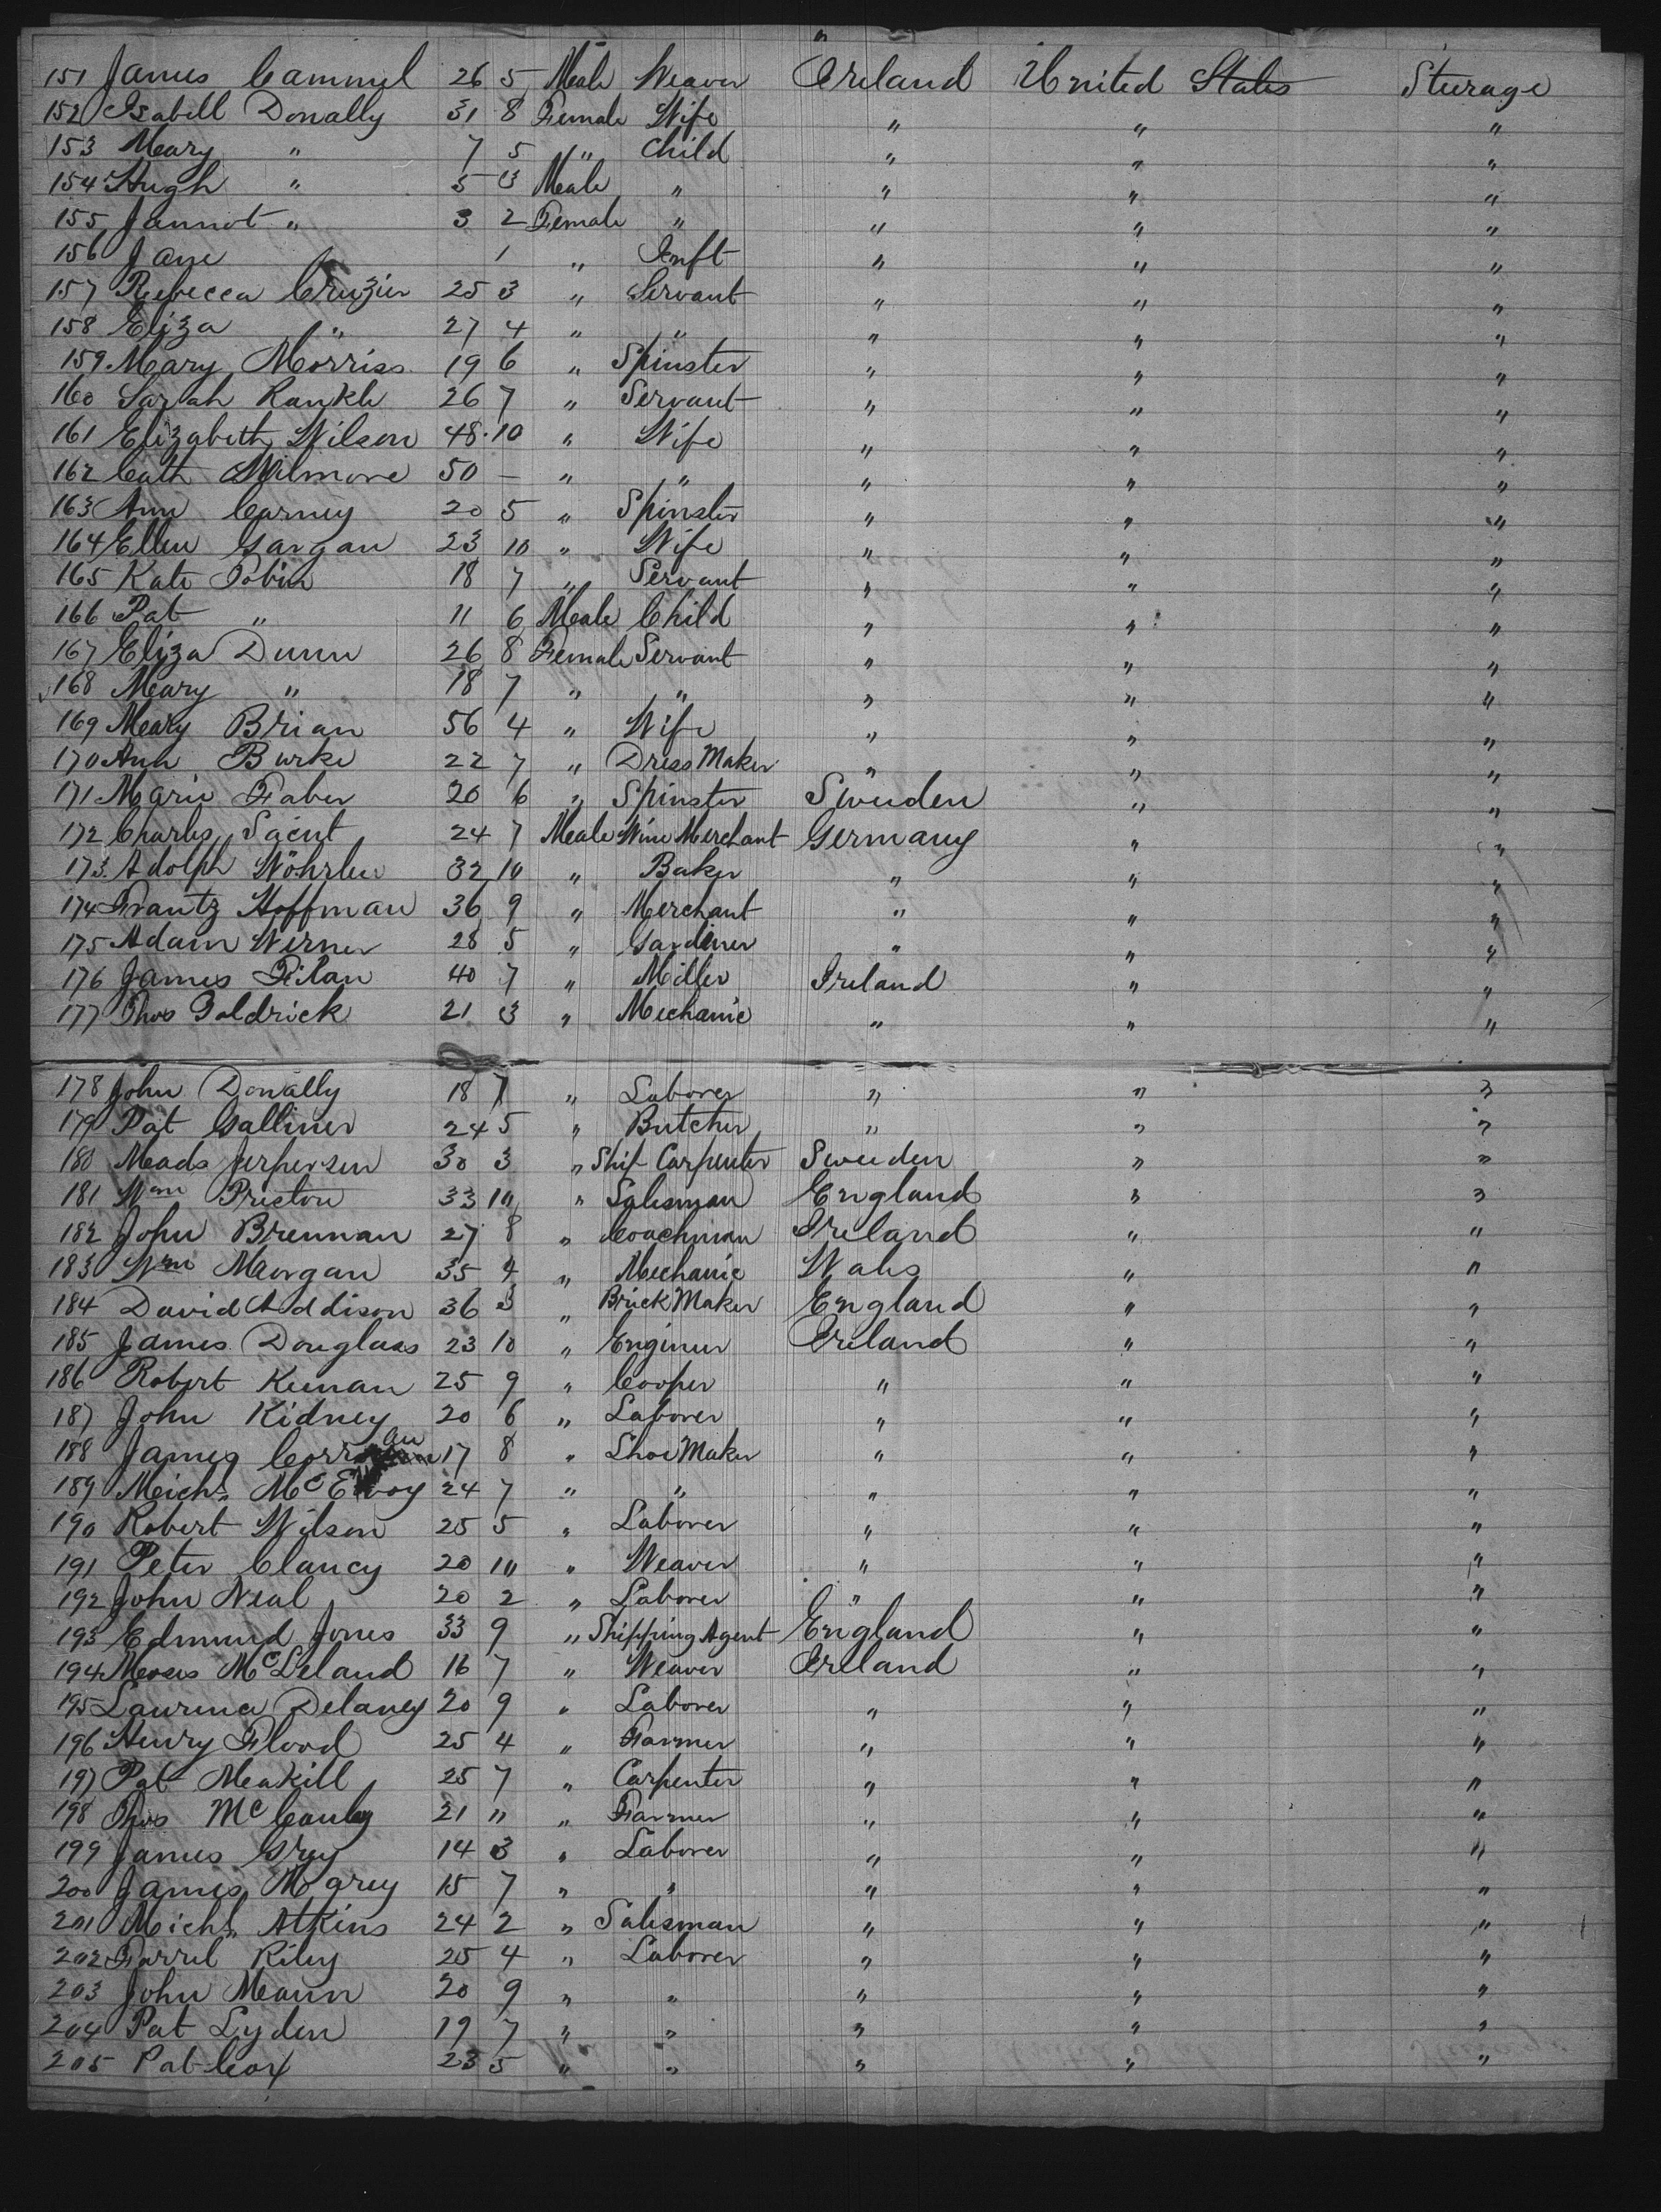 151 James Cammyl 26 5 Male Weaver Ireland United States Steerage
152 Isabell Donally 31 8 Female Wife " " "
153 Mary " 7 5 " Child " " "
154 Hugh " 5 3 Male " " " "
155 Jannot " 3 2 Female " " " "
156 Jane " 1 " Inft " " "
157 Rebecca Cruzier 25 3 " Servant " " "
158 Eliza " 27 4 " " " " "
159 Mary Morriss 19 6 " Spinster " " "
160 Sarah Rankle 26 7 " Servant " " "
161 Elizabeth Wilson 48 10 " Wife " " "
162 Cath Wilmore 50 — " " " " "
163 Ann Carney 20 5 " Spinster " " "
164 Ellen Gargan 23 10 " Wife " " "
165 Kate Tobin 18 7 " Servant " " "
166 Pat " 11 6 Male Child " " "
167 Eliza Dunn 26 8 Female Servant " " "
168 Mary " 18 7 " " " " "
169 Mary Brian 56 4 " Wife " " "
170 Ann Burke 22 7 " Dress Maker " " "
171 Marie Faber 20 6 " Spinster Sweden " "
172 Charles 24 7 Male Wine Merchant Germany " "
173 Adolph Wöhrlen 32 10 " Baker " " "
174 Frantz Hoffman 36 9 " Merchant " " "
175 Adam Werner 28 5 " Gardiner " " "
176 James Filan 40 7 " Miller Ireland " "
177 Thos Goldrick 21 3 " Mechanic " " "
178 John Donally 18 7 " Laborer " " "
179 Pat Galliner 24 5 " Butcher " " "
180 Mads Jerpersen 30 3 " Ship Carpenter Sweden " "
181 Wm Preston 33 10 " Salesman England " "
182 John Brennan 27 8 " Coachman Ireland " "
183 Wm Morgan 35 4 " Mechanic Wales " "
184 David Addison 36 3 " Brick Maker England " "
185 James Douglass 23 10 " Engineer Ireland " "
186 Robert Keenan 25 9 " Cooper " " "
187 John Kidney 20 6 " Laborer " " "
188 James 17 8 " Shoe Maker " " "
189 Michs McEvoy 24 7 " " " " "
190 Robert Wilson 25 5 " Laborer " " "
191 Peter Clancy 20 10 " Weaver " " "
192 John Neal 20 2 " Laborer " " "
193 Edmund Jones 33 9 " Shipping Agent England " "
194 Moses McLeland 16 7 " Weaver Ireland " "
195 Laurence Delaney 20 9 " Laborer " " "
196 Henry Flood 25 4 " Farmer " " "
197 Pat Meakill 25 7 " Carpenter " " "
198 Thos McCauley 21 " " Farmer " " "
199 James Gray 14 3 " Laborer " " "
200 James 15 7 " " " " "
201 Michl Atkins 24 2 " Salesman " " "
202 Farrel Riley 25 4 " Laborer " " "
203 John Mann 20 9 " " " " "
204 Pat Lyden 19 7 " " " " "
205 Pat Cox 23 5 " " " " "